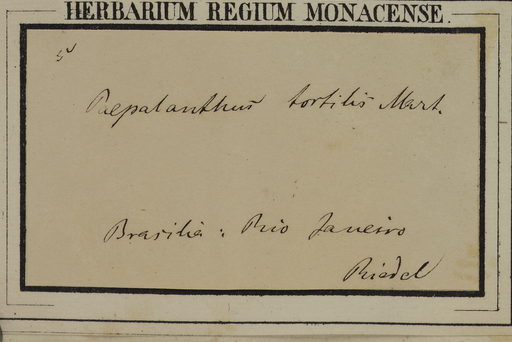 HERBARIUM REGIUM MONACENSE.
5
Paepalanthus tortilis Mart.
Brasilia : Rio Janeiro
Riedel